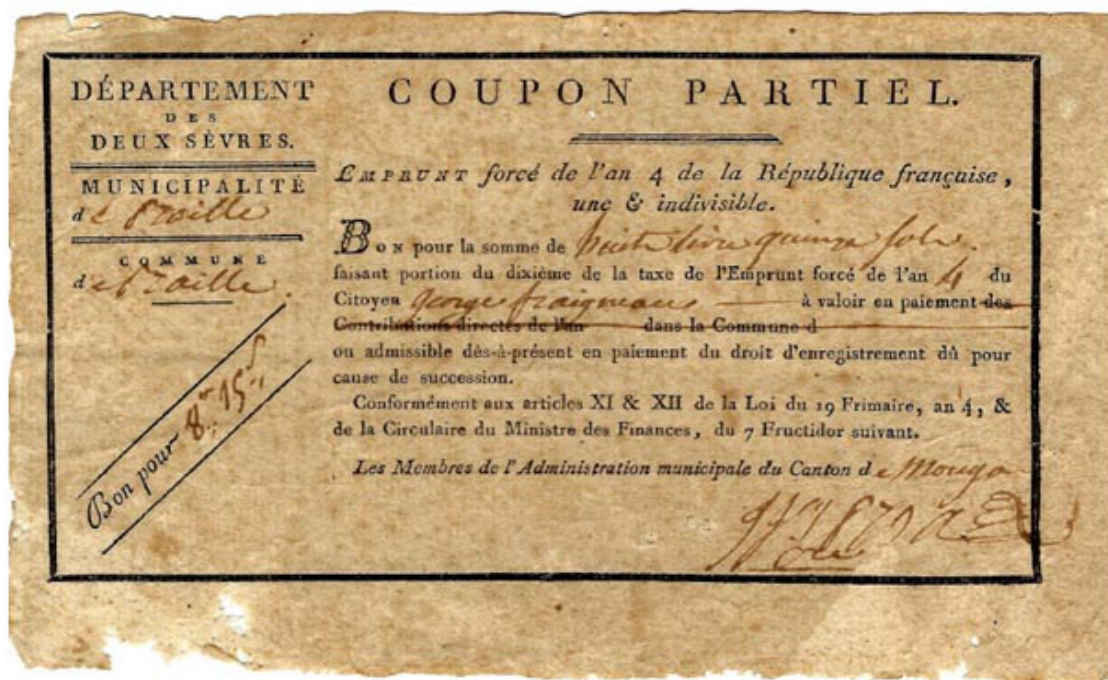 DÉPARTEMENT
DES
DEUX SÈVRES.
MUNICIPALITÉ
de Praille
COMMUNE
de Praille
Bon pour 8ᵗᵗ 15ˢ
COUPON PARTIEL.
EMPRUNT forcé de l'an 4 de la République française,
une & indivisible.
BON pour la somme de huit livre quinze sols.
faisant portion du dixième de la taxe de l'Emprunt forcé de l'an 4 du
Citoyen george fraigneau à valoir en paiement des
Contributions directes de l'an dans la Commune d
ou admissible dès-à-présent en paiement du droit d'enregistrement dû pour
cause de succession.
Conformément aux articles XI & XII de la Loi du 19 Frimaire, an 4, &
de la Circulaire du Ministre des Finances, du 7 Fructidor suivant.
Les Membres de l'Administration municipale du Canton de Mougon